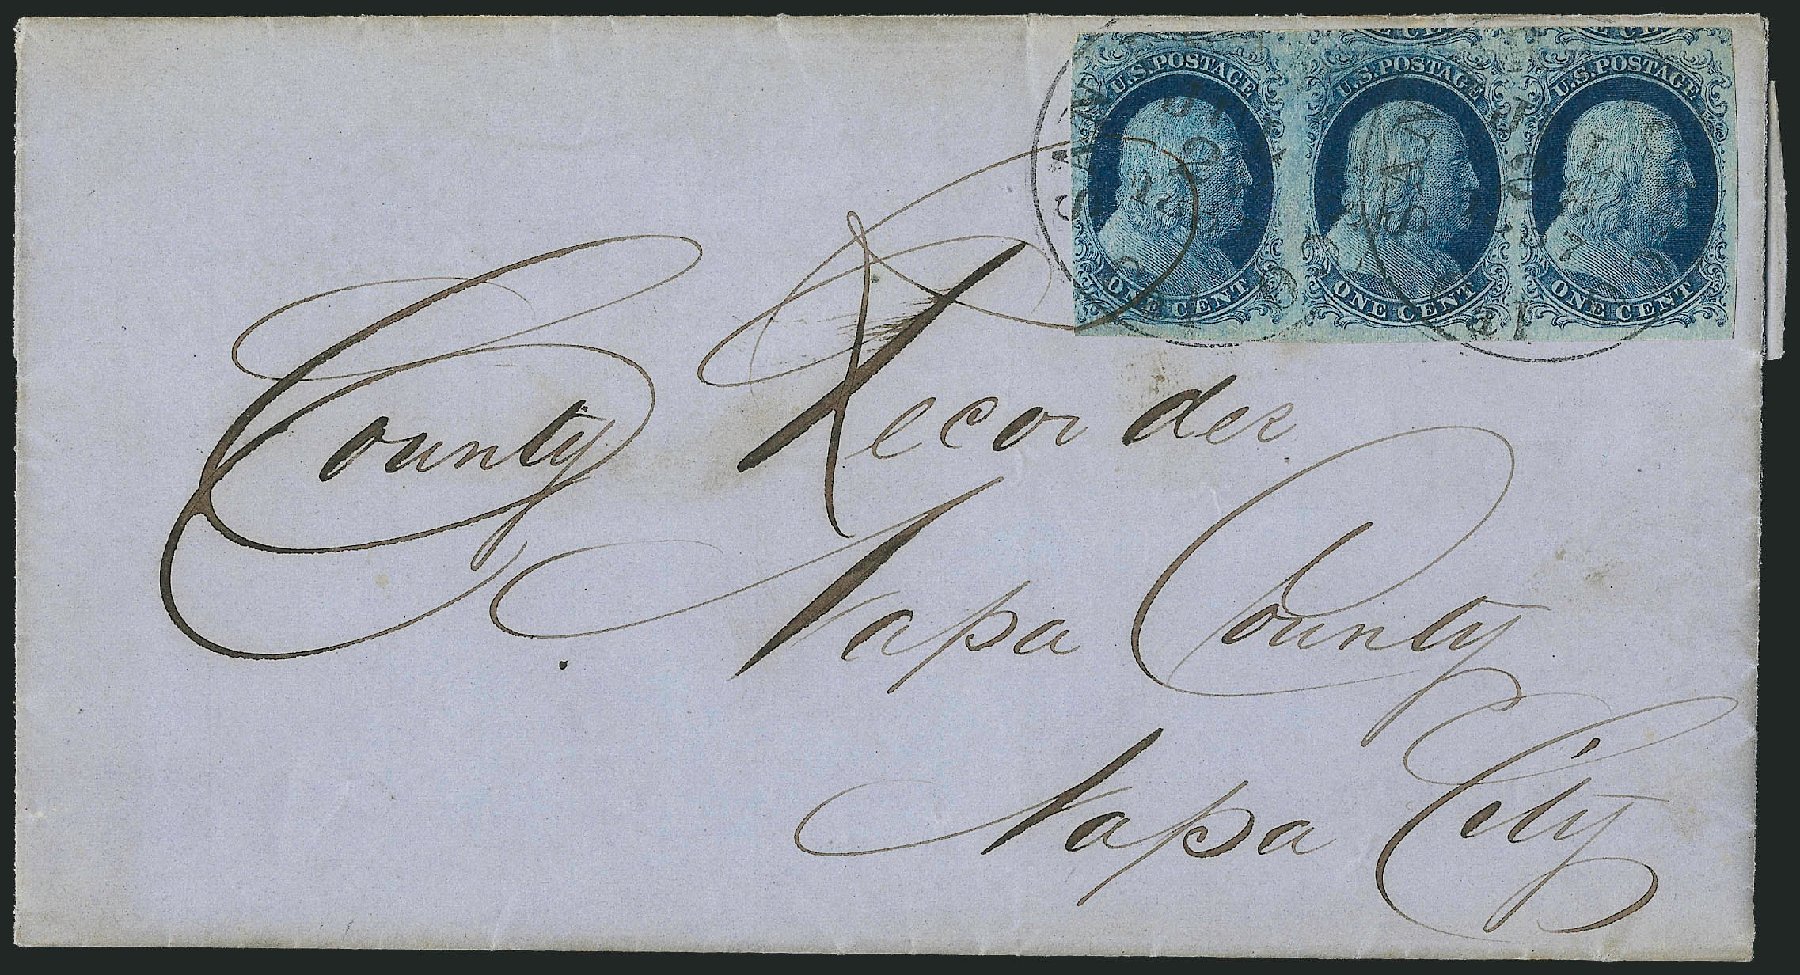 U.S. POSTAGE U.S. POSTAGE U.S. POSTAGE
ONE CENT ONE CENT ONE CENT
County Recorder
Napa County
Napa City